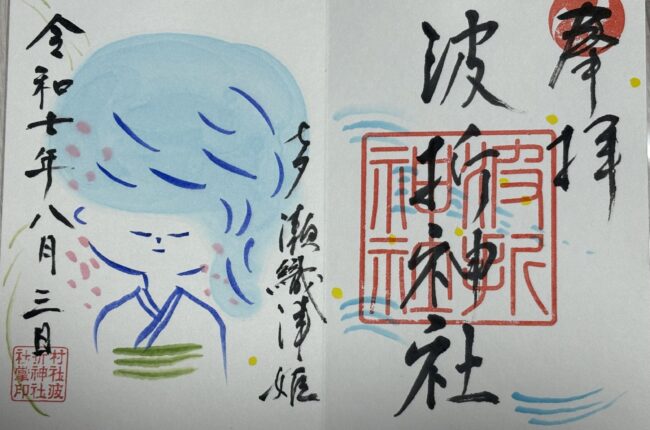 奉拝
波折神社
波折
神社
七夕 瀬織津姫
令和七年八月三日
村社波
折神社
社掌印